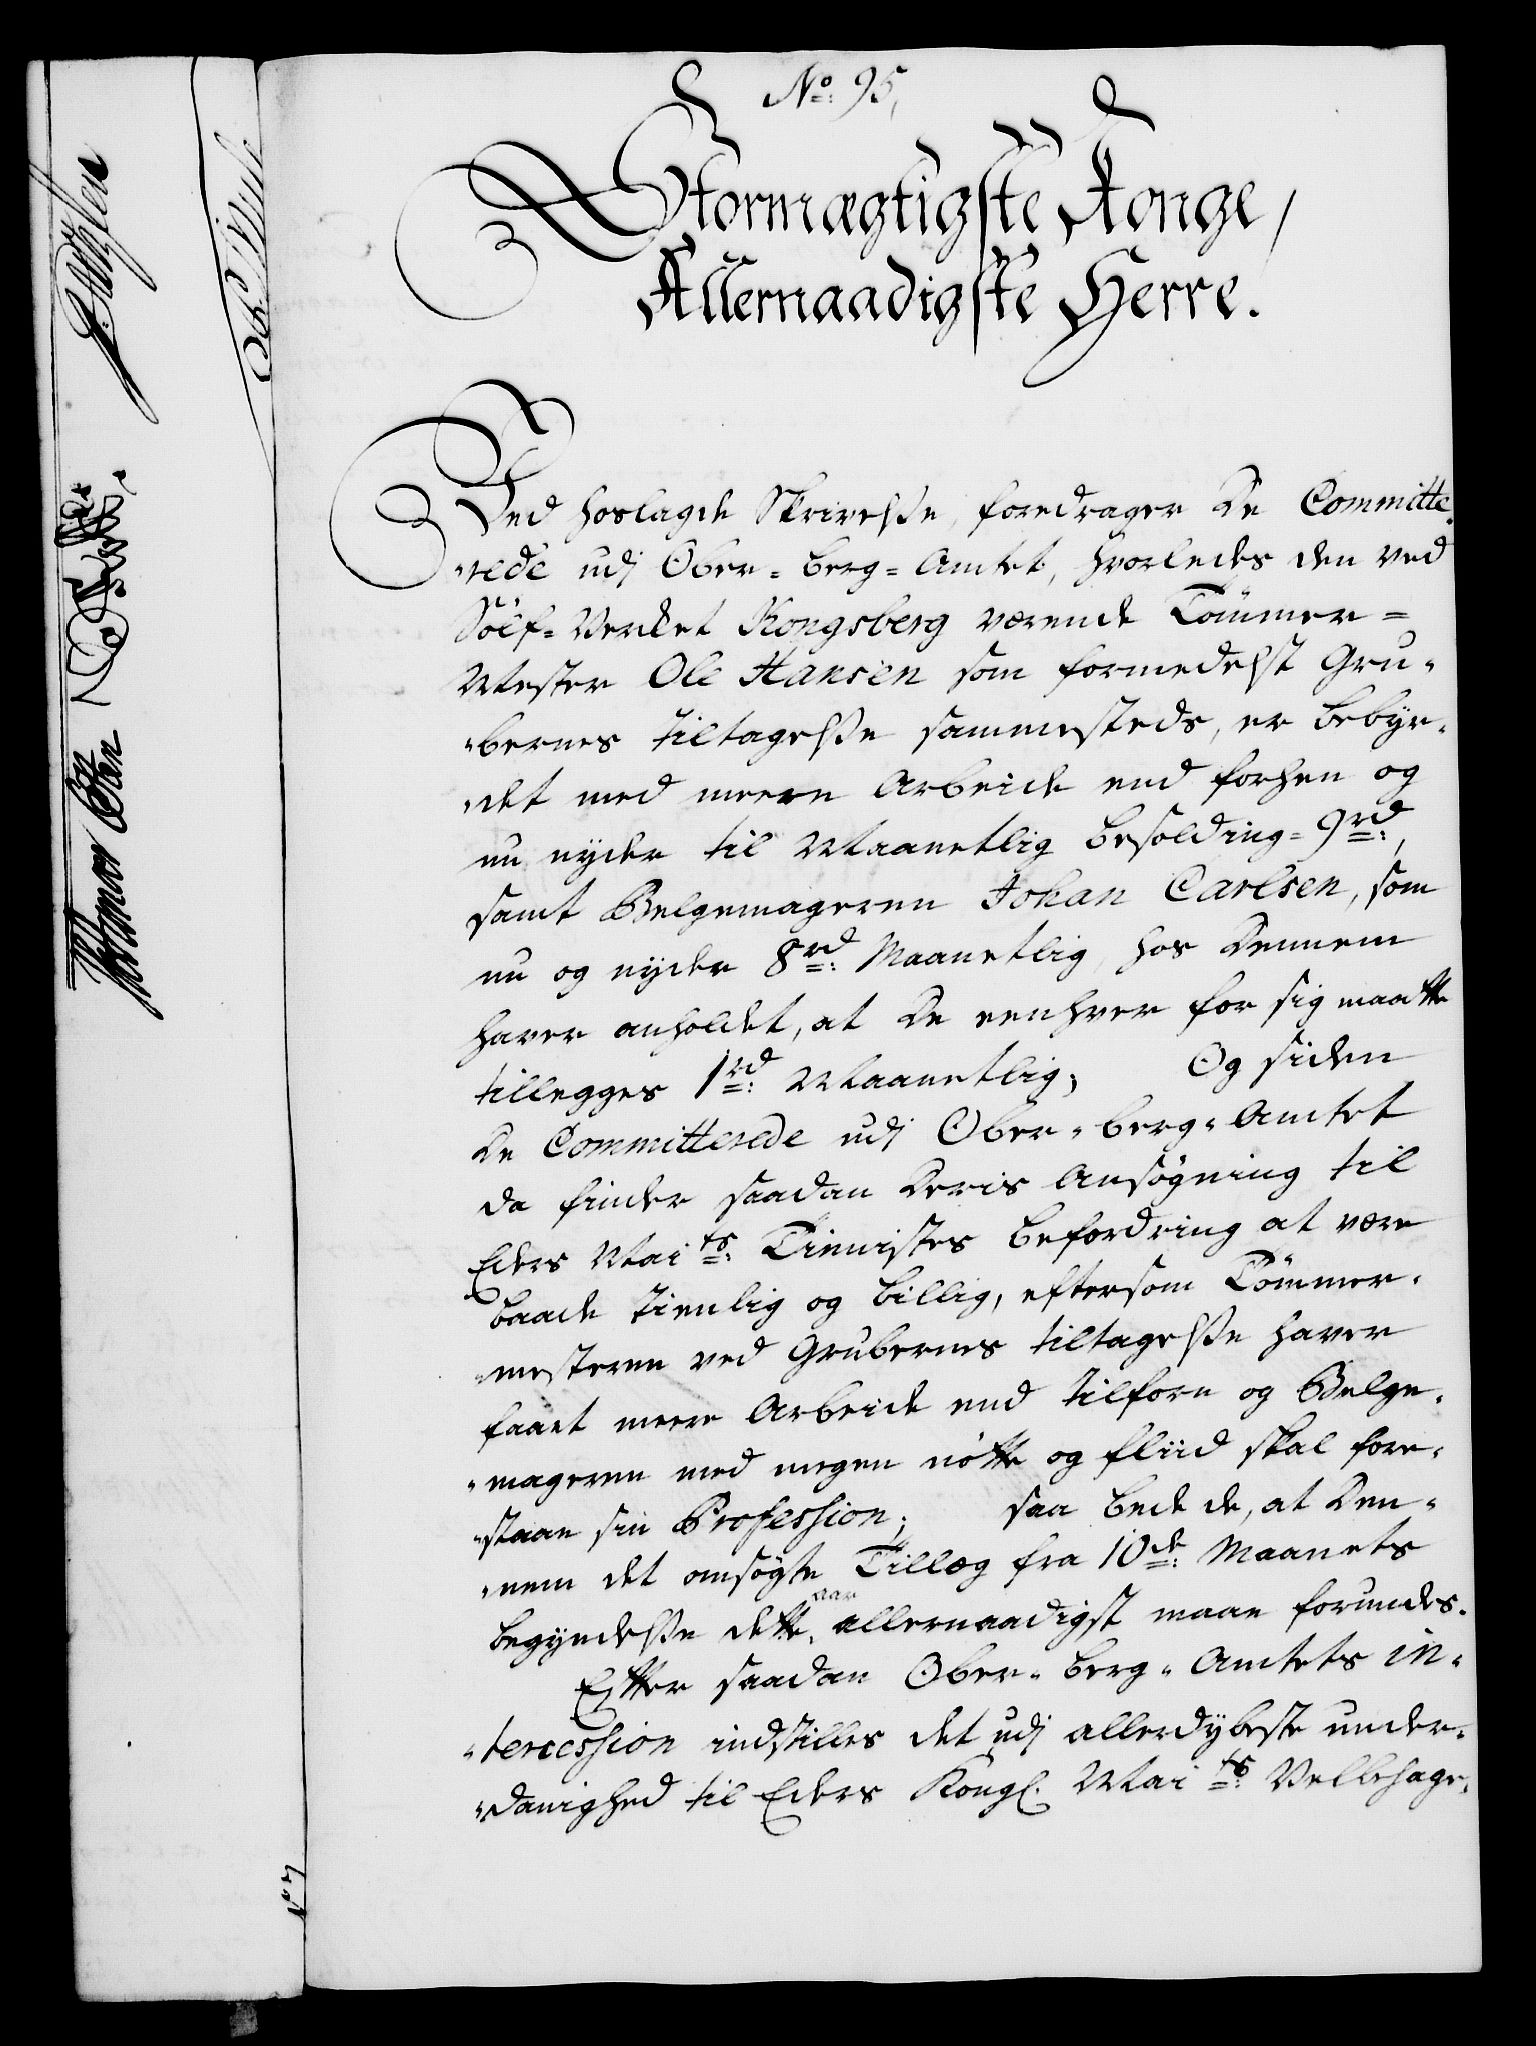 No: 95,
Stormægtigste Konge,
Allernaadigste Herre.
Ved hoslagde Skrivelsse, foredrager De Committe-
-rede udj Ober-Berg-Amtet, hvorledes den ved
Sölf-Verket Kongsberg værende Tömmer-
Mester Ole Hansen som formedelst Gru-
-bernes tiltagelsse sammesteds, er bebyr-
-det med meere Arbeide end forhen og
nu nyder til Maanetlig besolding- 9 rd:,
samt Belgemageren Johan Carlsen, som
nu og nyder 8 rd: Maanetlig, hos Dennem
haver anholdet, at De eenhver for sig maatte
tillegges 1 rd: Maanetlig; Og siden
De Committerede udj Ober-Berg-Amtet
da finder saadan Deris Ansögning til
Eders Mai ts: Tienistes befordring at være
baade tienlig og billig, eftersom Tömmer-
-mesteren ved Grubernes tiltagelsse haver
faaet meere Arbeide end tilforn og Belge-
-mageren med megen nötte og fliid skal fore-
-staae sin Profession; saa bede de, at Den-
-nem det ansögte Tillæg fra 10de: Maanets
begyndelsse dette aar allernaadigst maae forundes.
Effter saadan Ober-Berg-Amtets in-
-tercession indstilles det udj allerdybeste under-
-danighed til Eders Kongl. Mai ts: Velbehage-